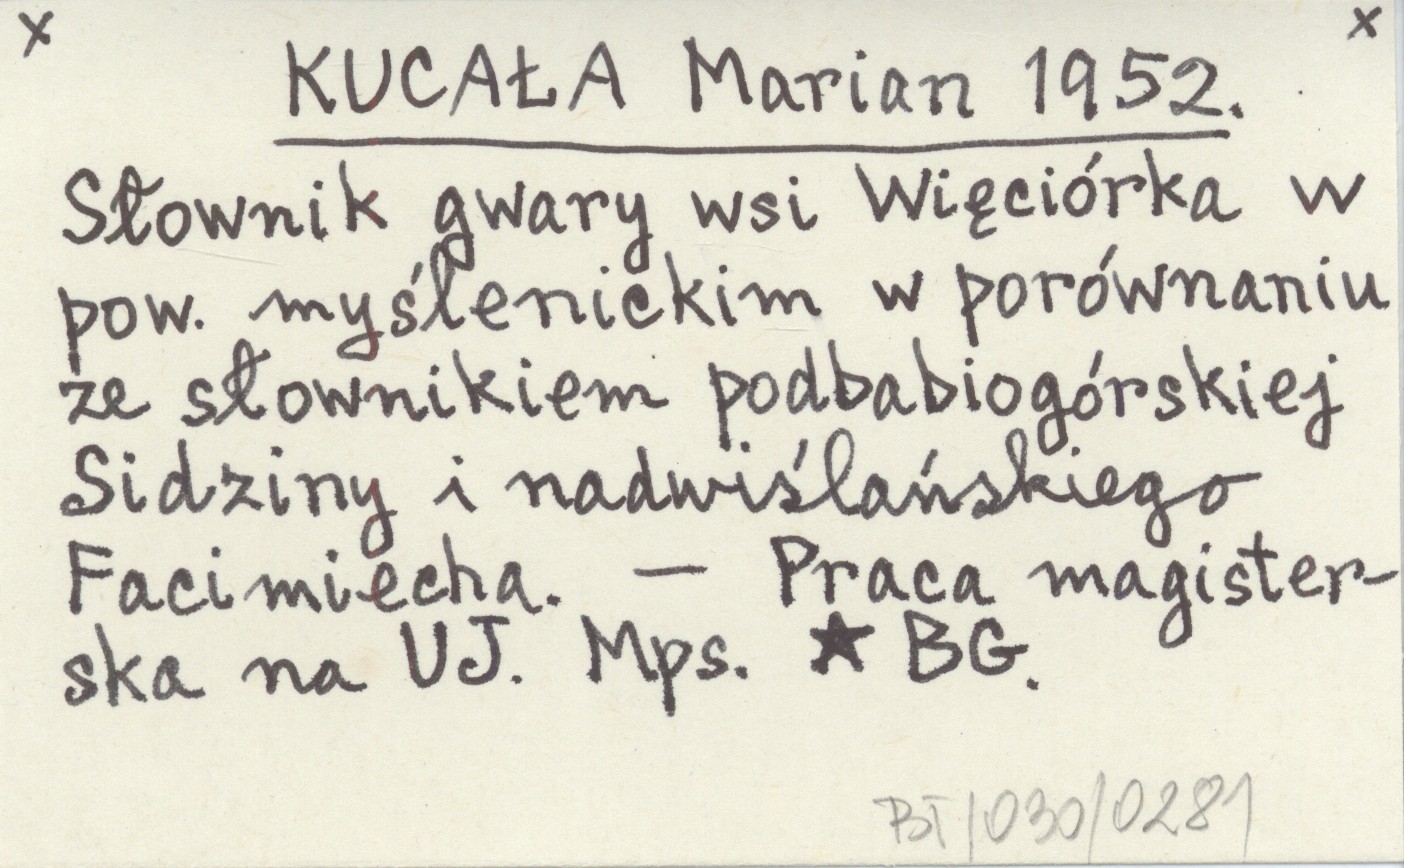 x x
KUCAŁA Marian 1952.
Słownik gwary wsi Więciórka w
pow. myślenickim w porównaniu
ze słownikiem podbabiogórskiej
Sidziny i nadwiślańskiego
Facimiecha. — Praca magister-
ska na UJ. Mps. ★ BG.
BT/030/0281